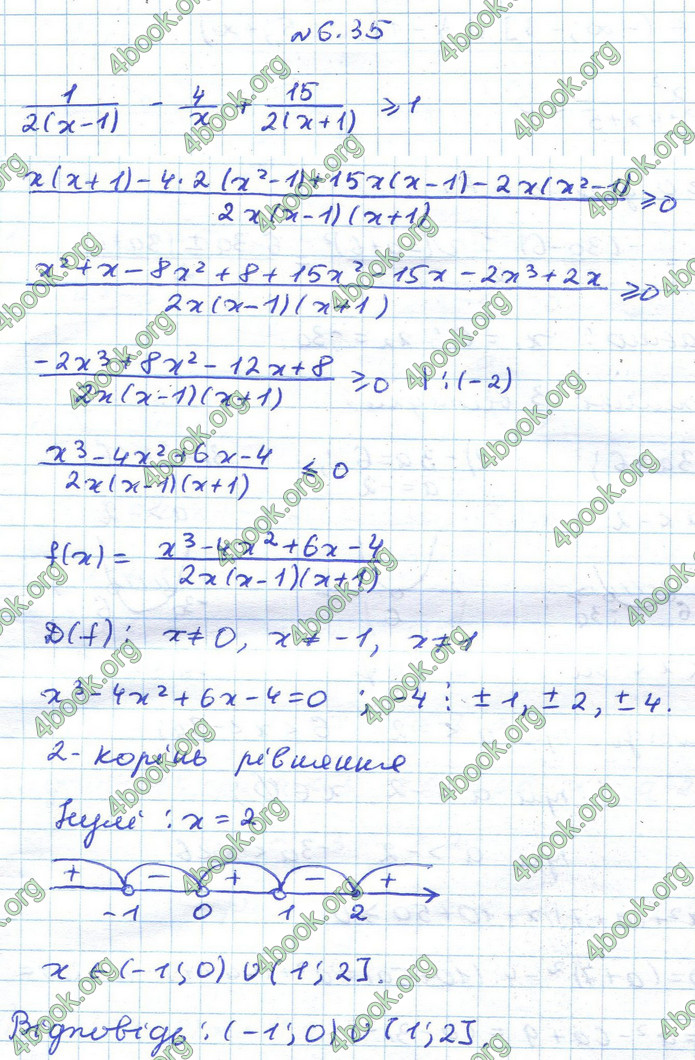 №6.35
1/(2(x-1)) - 4/x + 15/(2(x+1)) ≥ 1
(x(x+1)-4·2(x²-1)+15x(x-1)-2x(x²-1))/(2x(x-1)(x+1)) ≥ 0
(x²+x-8x²+8+15x²-15x-2x³+2x)/(2x(x-1)(x+1)) ≥ 0
(-2x³+8x²-12x+8)/(2x(x-1)(x+1)) ≥ 0 | : (-2)
(x³-4x²+6x-4)/(2x(x-1)(x+1)) ≤ 0
f(x) = (x³-4x²+6x-4)/(2x(x-1)(x+1))
D(f): x≠0, x≠-1, x≠1
x³-4x²+6x-4=0 ; -4 ⋮ ±1, ±2, ±4.
2- корінь рівняння
Нулі : x=2
+ - + - +
-1 0 1 2
x ∈ (-1;0) ∪ (1;2].
Відповідь: (-1;0) ∪ (1;2].
4book.org